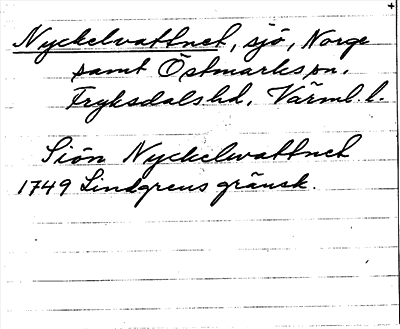 Nyckelvattnet, sjö, Norge
samt Östmarks sn.
Fryksdals hd, Värml. l.
Siön Nyckelwattnet
1749 Lindgrens gränsk.